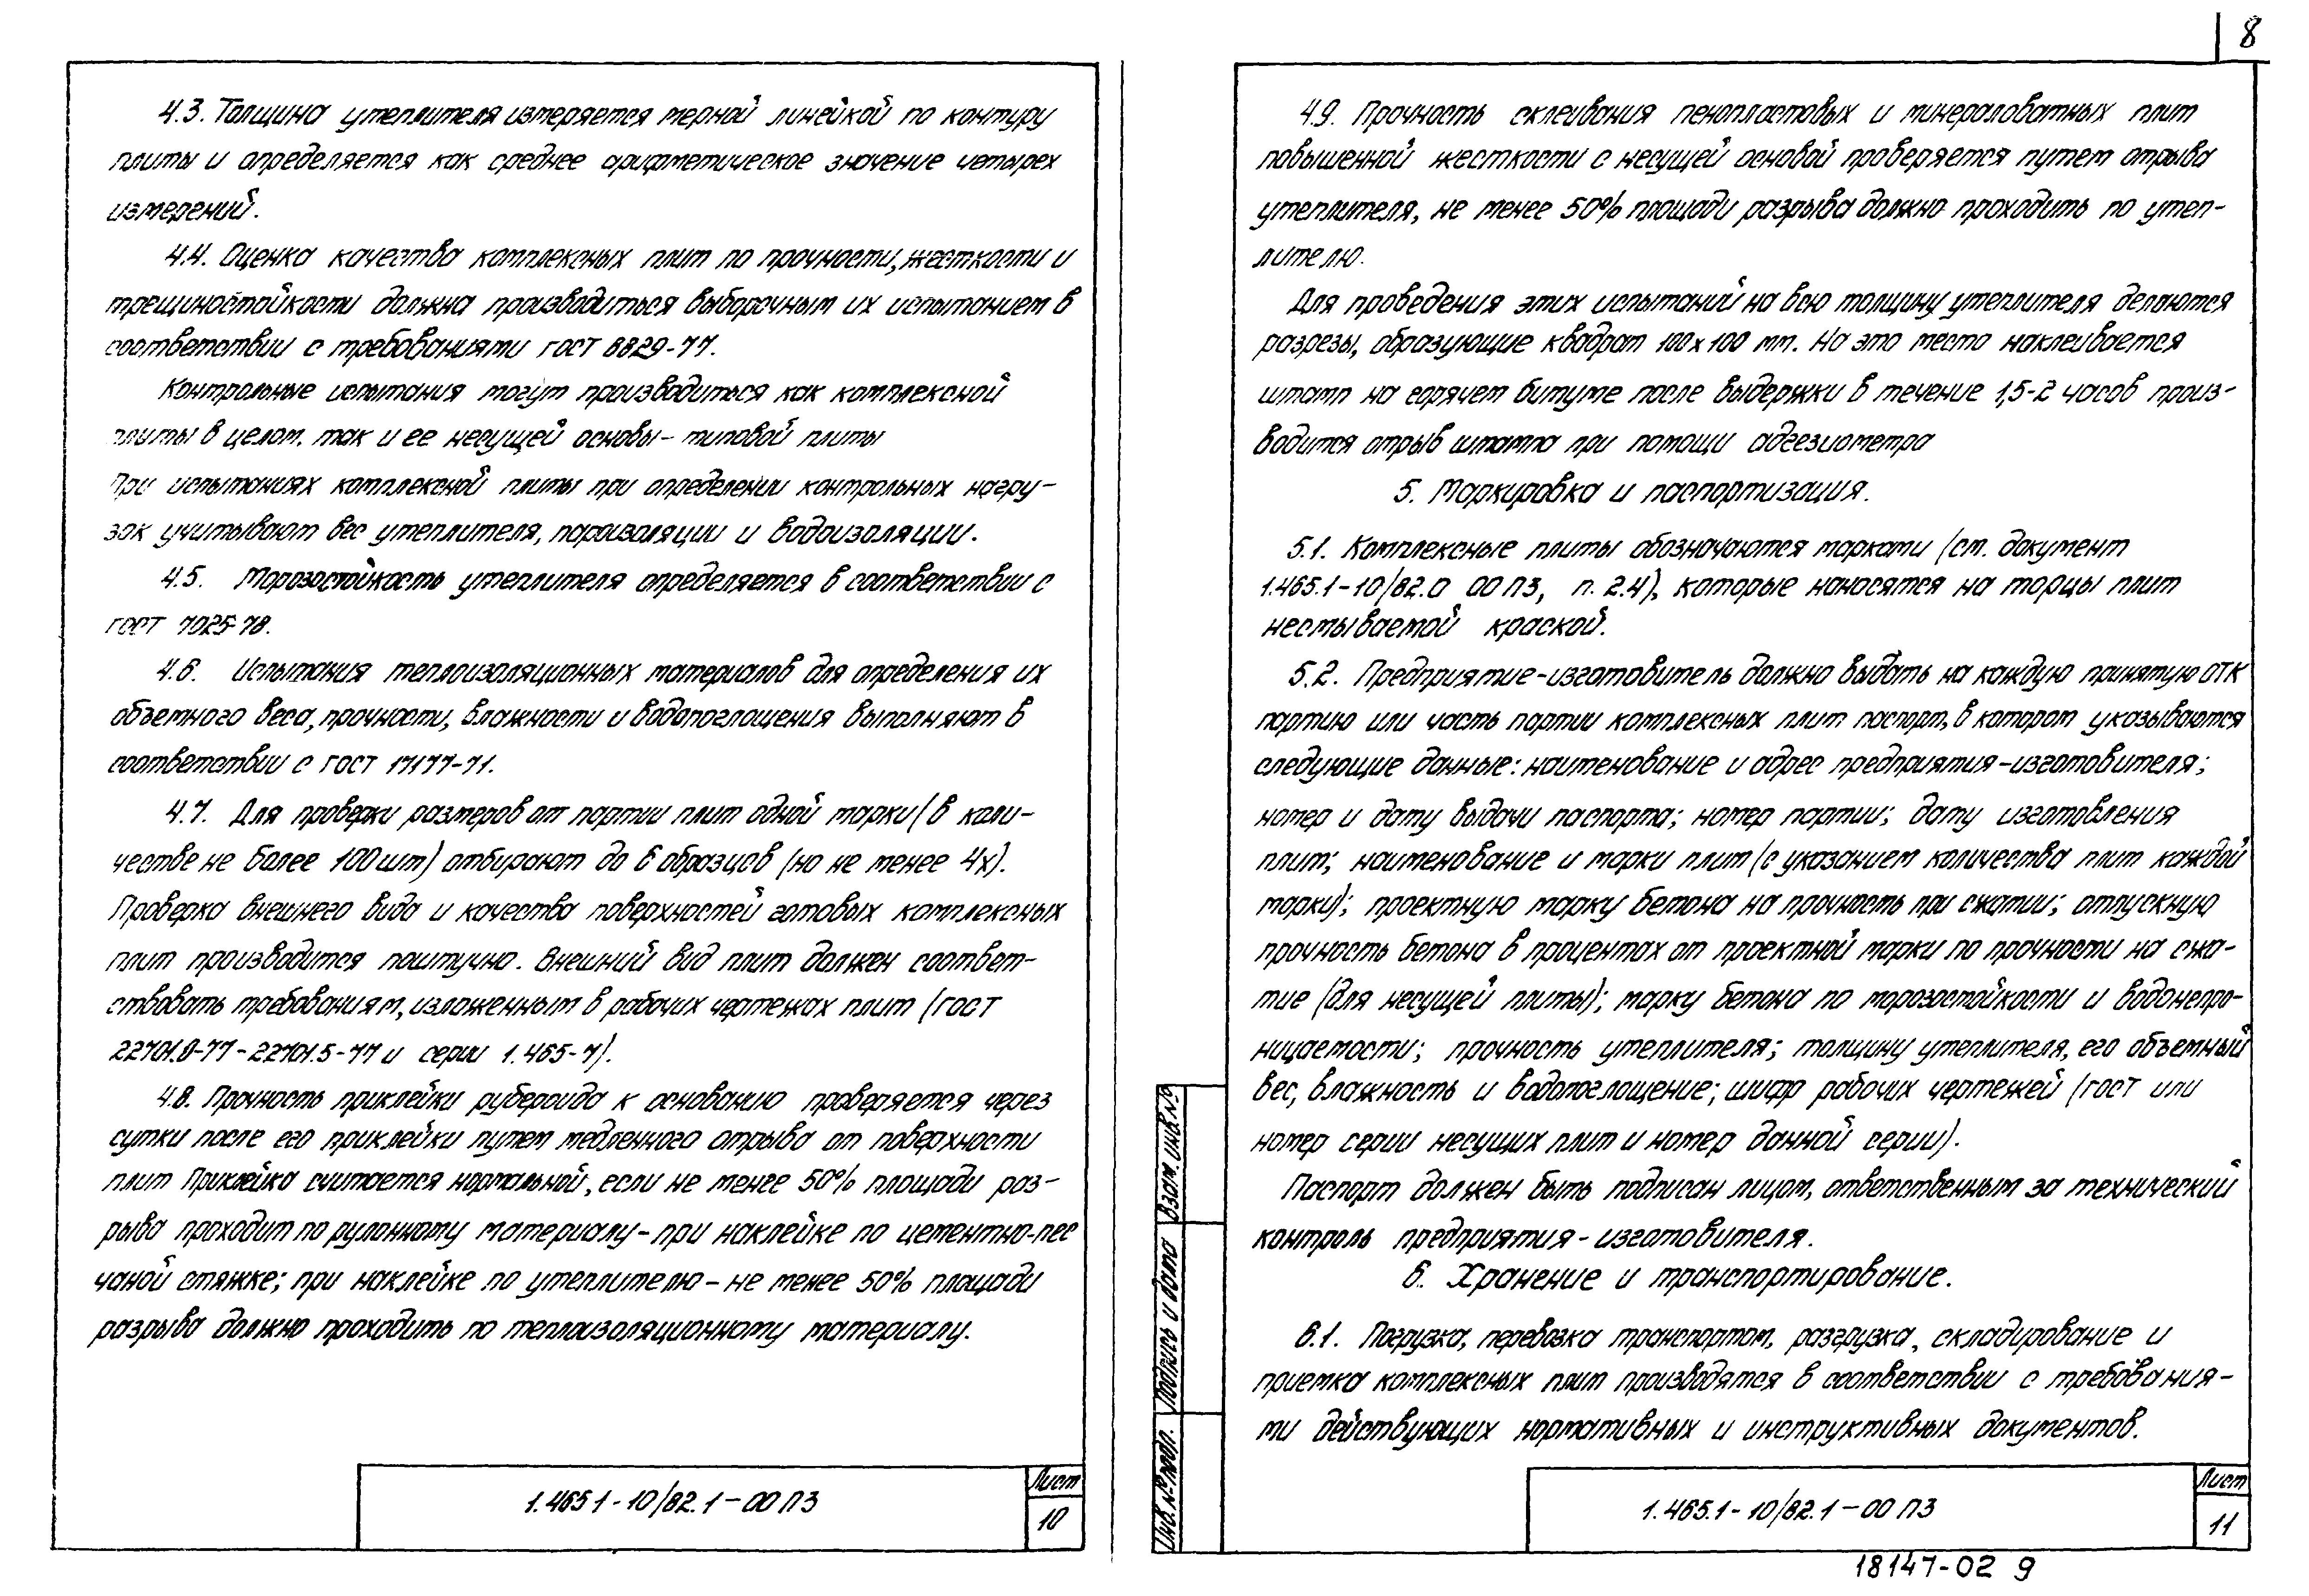 8
4.3. Толщина утеплителя измеряется мерной линейкой по контуру
плиты и определяется как среднее арифметическое значение четырех
измерений.
4.4. Оценка качества комплексных плит по прочности, жесткости и
трещиностойкости должна производиться выборочным их испытанием в
соответствии с требованиями ГОСТ 8829-77.
Контрольные испытания могут производиться как комплексной
плиты в целом, так и ее несущей основы - типовой плиты
При испытаниях комплексной плиты при определении контрольных нагру-
зок учитывают вес утеплителя, пароизоляции и водоизоляции.
4.5. Морозостойкость утеплителя определяется в соответствии с
ГОСТ 7025-78.
4.6. Испытания теплоизоляционных материалов для определения их
объемного веса, прочности, влажности и водопоглощения выполняют в
соответствии с ГОСТ 17177-71.
4.7. Для проверки размеров от партии плит одной марки (в коли-
честве не более 100 шт) отбирают до 6 образцов (но не менее 4х).
Проверка внешнего вида и качества поверхностей готовых комплексных
плит производится поштучно. Внешний вид плит должен соответ-
ствовать требованиям, изложенным в рабочих чертежах плит (ГОСТ
22701.0-77-22701.5-77 и серии 1.465-7).
4.8. Прочность приклейки рубероида к основанию проверяется через
сутки после его приклейки путем медленного отрыва от поверхности
плит Приклейка считается нормальной, если не менее 50% площади раз-
рыва проходит по рулонному материалу - при наклейке по цементно-пес
чаной стяжке; при наклейке по утеплителю - не менее 50% площади
разрыва должно проходить по теплоизоляционному материалу.
1.465 1-10/82.1-00 ПЗ
Лист
10
4.9. Прочность склеивания пенопластовых и минераловатных плит
повышенной жесткости с несущей основой проверяется путем отрыва
утеплителя, не менее 50% площади разрыва должно проходить по утеп-
лителю.
Для проведения этих испытаний на всю толщину утеплителя делаются
разрезы, образующие квадрат 100х100 мм. На это место наклеивается
штамп на горячем битуме после выдержки в течение 1,5-2 часов произ-
водится отрыв штампа при помощи адгезиометра
5. Маркировка и паспортизация.
5.1. Комплексные плиты обозначаются марками (см. документ
1.465.1-10/82.0 00 ПЗ, п. 2.4), которые наносятся на торцы плит
несмываемой краской.
5.2. Предприятие-изготовитель должно выдать на каждую принятую ОТК
партию или часть партии комплексных плит паспорт, в котором указываются
следующие данные: наименование и адрес предприятия-изготовителя;
номер и дату выдачи паспорта; номер партии; дату изготовления
плит; наименование и марки плит (с указанием количества плит каждой
марки); проектную марку бетона на прочность при сжатии; отпускную
прочность бетона в процентах от проектной марки по прочности на сжа-
тие (для несущей плиты); марку бетона по морозостойкости и водонепро-
ницаемости; прочность утеплителя; толщину утеплителя, его объемный
вес, влажность и водопоглощение; шифр рабочих чертежей (ГОСТ или
номер серии несущих плит и номер данной серии).
Паспорт должен быть подписан лицом, ответственным за технический
контроль предприятия-изготовителя.
6. Хранение и транспортирование.
6.1. Погрузка, перевозка транспортом, разгрузка, складирование и
приемка комплексных плит производятся в соответствии с требования-
ми действующих нормативных и инструктивных документов.
Взам. инв.№
Подпись и дата
Инв.№ подл.
1.465.1-10/82.1-00 ПЗ
Лист
11
18147-02 9